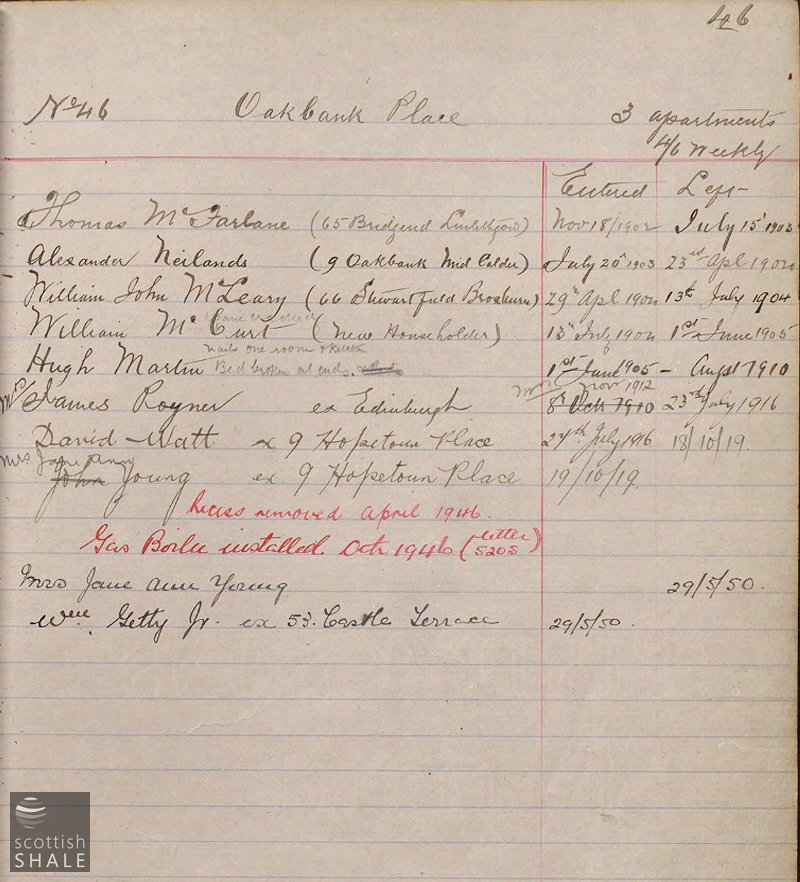 46
No 46 Oakbank Place 3 apartments
4/6 Weekly
Entered Left
Thomas McFarlane (65 Bridgend Linlithgow) Nov 18/1902 July 15th 1903
Alexander Neilands (9 Oakbank Mid Calder) July 20th 1903 23rd Apl 1904
William John McLeary (66 Stewartfield Broxburn) 29th Apl 1904 13th July 1904
William McCurt (New Householder) 13th July 1904 1st June 1905
nails one room & kitchen
Hugh Martin Bed broken at ends. 1st June 1905 - Augst 1910
Mrs Nov 1912
Mrs James Royner ex Edinburgh 8th Oct 1910 23rd July 1916
David Watt ex 9 Hopetoun Place 27th July 1916 18/10/19.
Mrs Jane Ann
John Young ex. 9 Hopetoun Place 19/10/19.
Recess removed April 1946.
Gas Boiler installed Oct 1946 (letter 5205)
Mrs Jane Ann Young 29/5/50.
Wm. Getty Jr. ex 53. Castle Terrace 29/5/50.
scottish
SHALE